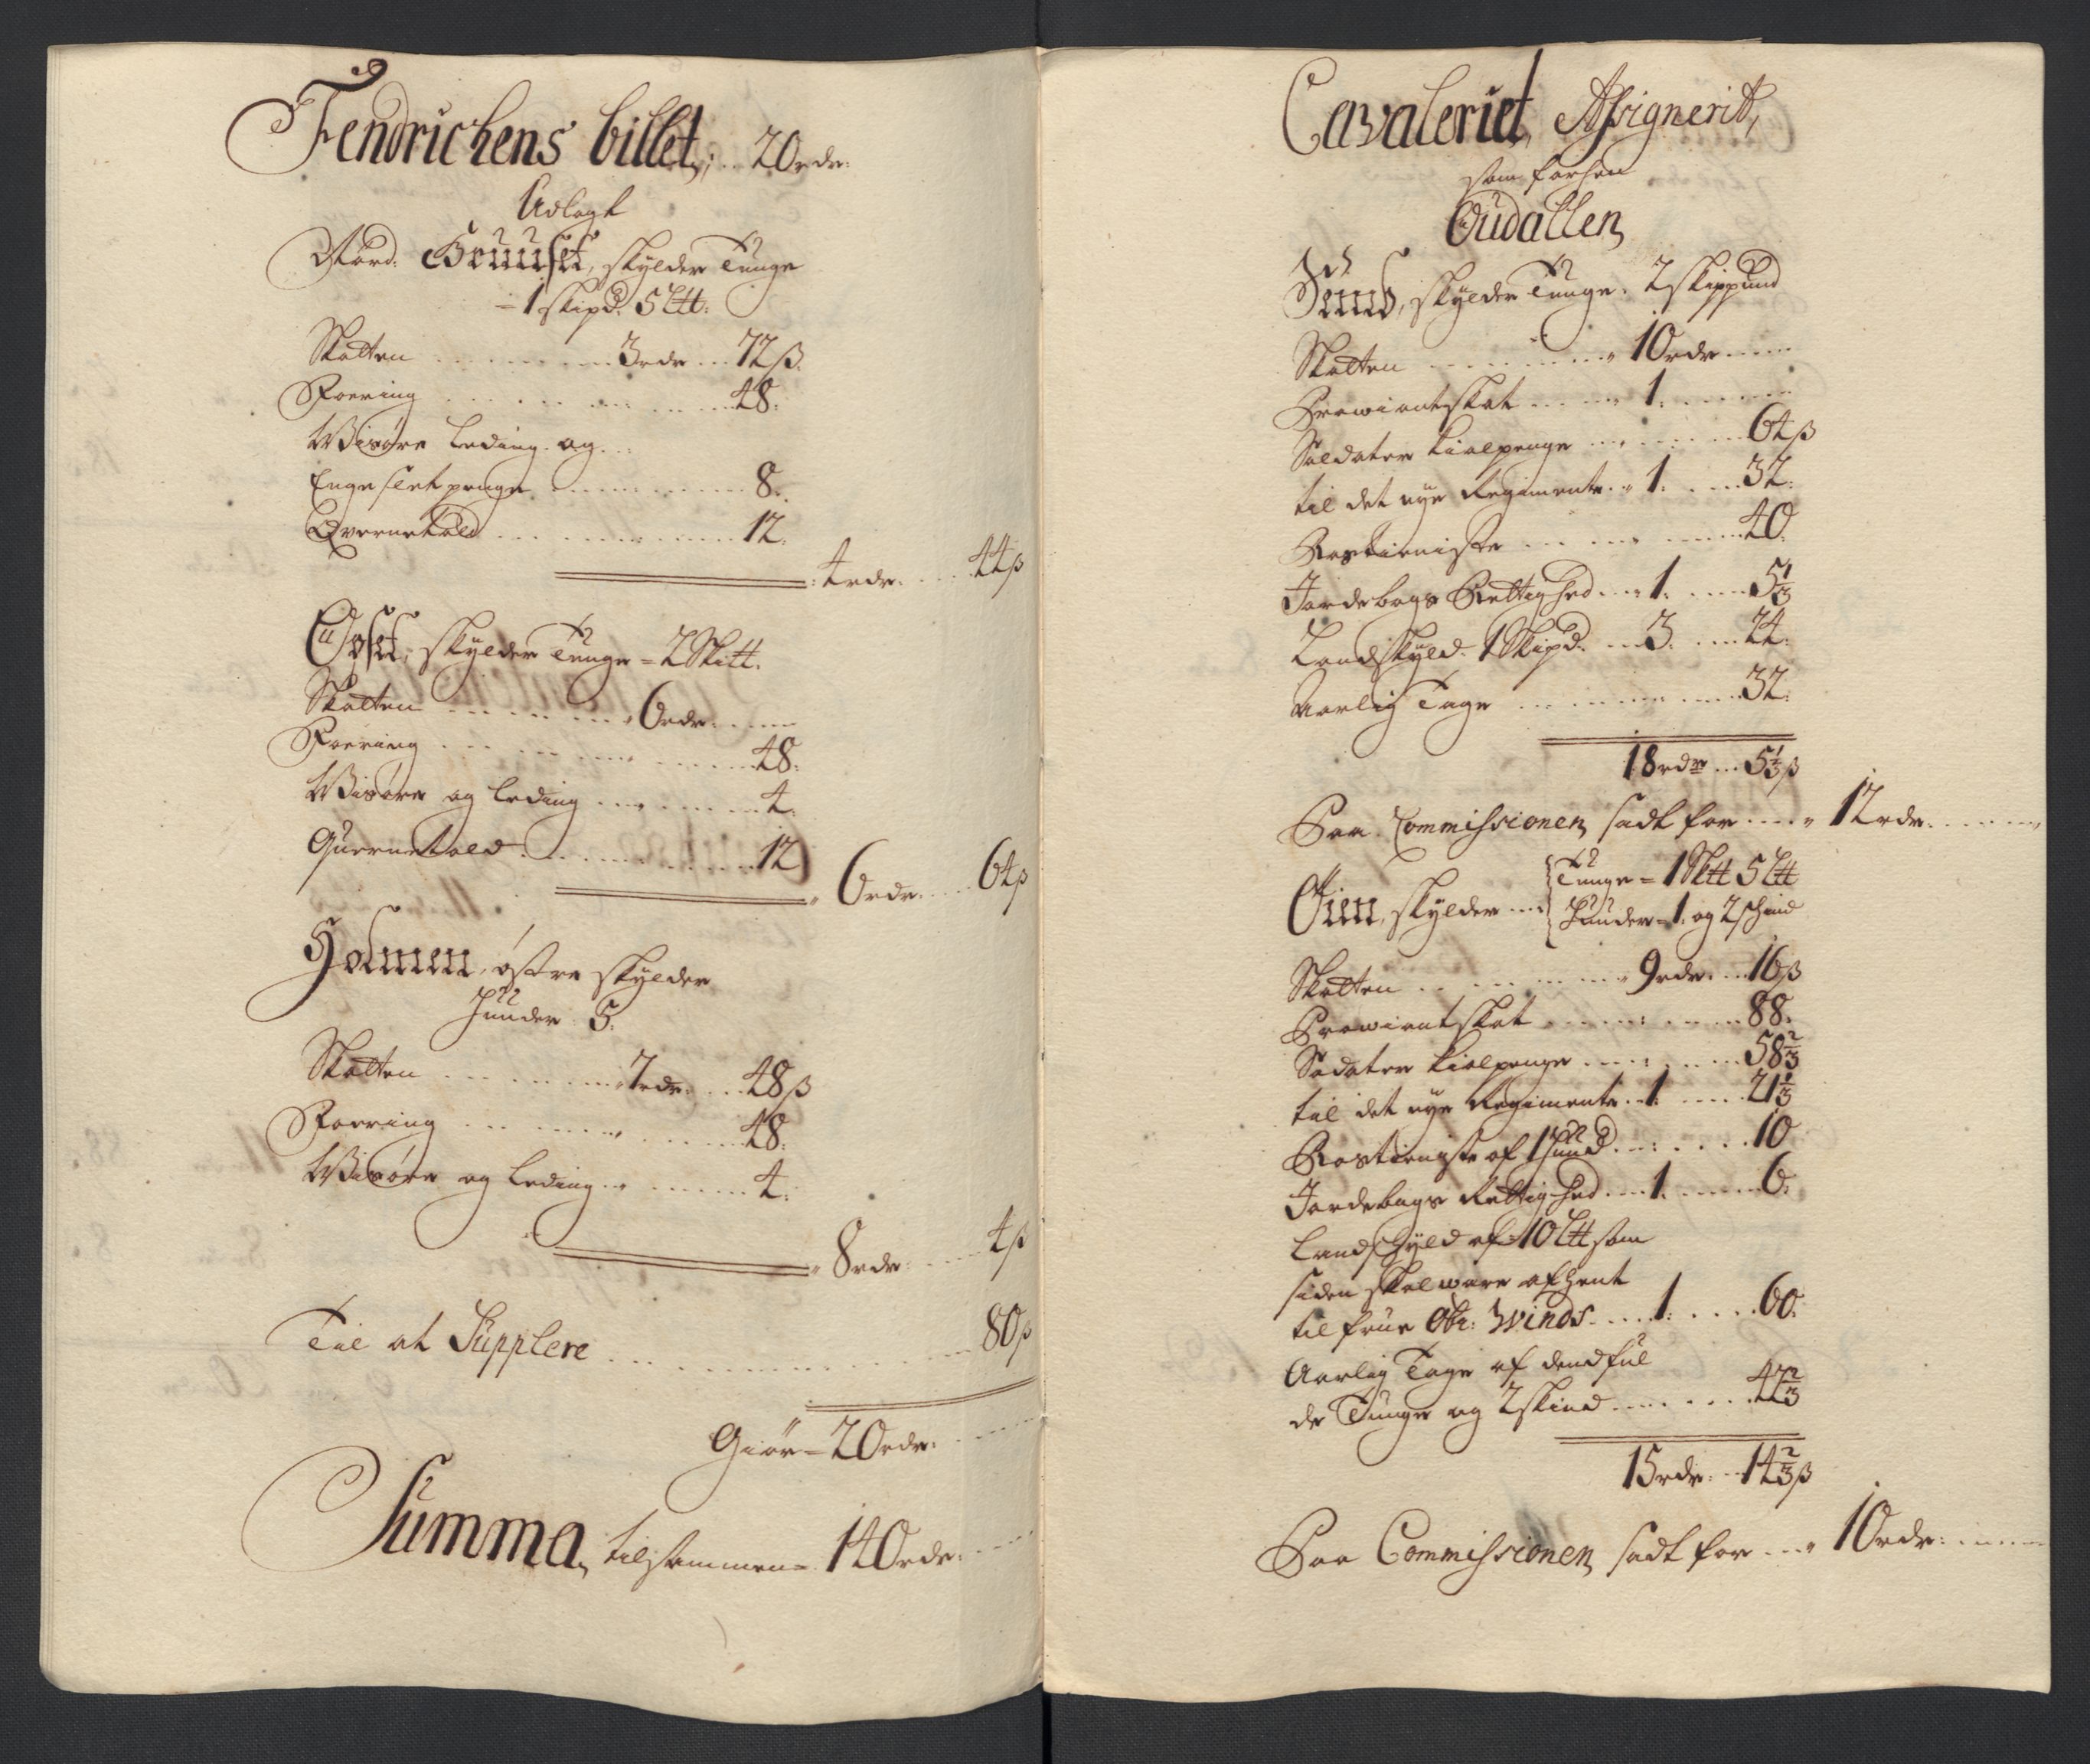 Fendrichens billet; 20 rdr:
Udlagt
Nord: Gruuset, skylder Tunge
= 1 skipd. 5 L℔:
Skatten 3 rdr 72 β.
Foering 48:
Wisøre Leding og
Engeslet penge 8.
Qvernetold 12.
4 rdr. 44 β
skylder Tunge = 2 Sk℔.
Skatten 6 rdr:
Foering 48:
Wisøre og Leding 4.
Quernetold 12
6 rdr. 64 β
Holmen, østre skylder
Huuder 5.
Skatten 7 rdr. 48 β
Foering 48:
Wisøre og Leding 4.
8 rdr. 4 β
Til at Supplere 80 β
Giør = 20 rdr:
Summa, tilsammen = 140 rdr.
Cavaleriet, Assignerit,
som forhen
Oudallen
skylder Tunge: 2 skippund
Skatten 10 rdr
Prowiantskat 1.
Soldater Kiolpenge 64 β
til det nye Regimente 1. 32.
Rostieniste 40.
Jordebogs Rettighed 1. 5⅓
Landskyld 1 Skipd. 3. 24.
Aarlig Tage 32.
18 rdr 5⅓ β
Paa Commissionen sadt for 12 rdr.
Øien, skylder Tunge = 1 Sk℔ 5 L℔
Huuder = 1. og 2 skind
Skatten 9 rdr. 16 β
Prowiantskat 88.
Sodater Kiolpenge 58⅔
til det nye Regimente 1. 21⅓
Rostieniste af 1 Huud 10
Jordebogs Rettighed 1. 6.
Landschyld af 10 L℔ som
siden skal ware afhent
til frue Obr: Winds 1. 60.
Aarlig Tage af dend ful
de Tunge og 2 skind 42⅔
15 rdr. 14⅔ β
Paa Commissionen sadt for 10 rdr: